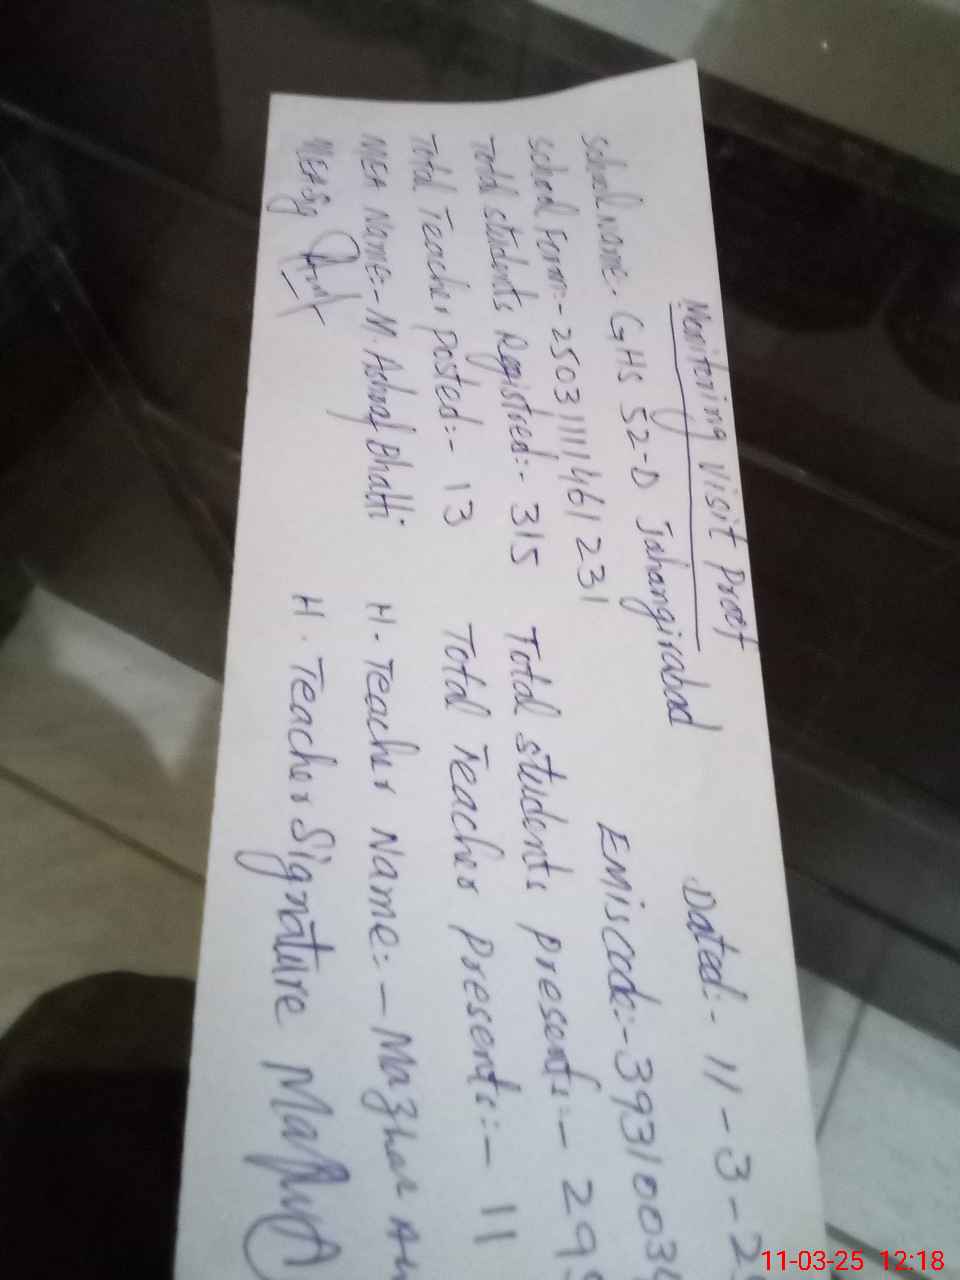 Monitering Visit Proof
Dated:- 11-3-2
School Name:- GHS 52-D Jahangirabad
Emis code:- 3931003
School Form:- 25031111461231
Total students Registred:- 315 Total students presents:- 29
Total Teacher posted:- 13 Total Teacher presents:- 11
MEA Name:- M. Ashraf Bhatti H. Teacher Name:- Mazhar
MEA Sg H. Teacher Signature
11-03-25 12:18